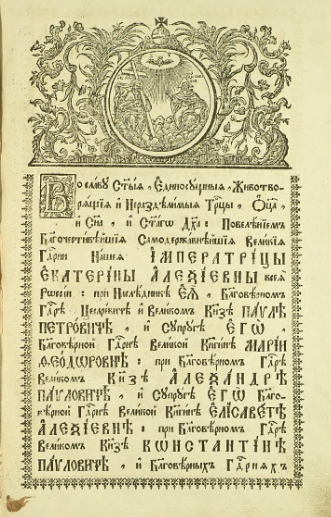 Во славу Ст҃ыѧ, Единосꙋщныѧ, Животво-
рѧщїѧ и Нераздѣлимыѧ Трⷪ҇цы, Ѻц҃а,
и Сн҃а, и Ст҃агѡ Дх҃а: Повелѣнїемъ
Благочестивѣйшїѧ Самодержавнѣйшїѧ Великїѧ
Гдⷭ҇рни Нашеѧ ІМПЕРАТРИЦЫ
ЕКАТЕРИНЫ АЛЕѮІЕВНЫ всеѧ
Рѡссїи: при Наслѣдникѣ ЕѦ, Благовѣрномъ
Гдⷭ҇рѣ Цесаревичѣ и Великомъ Кнѧзѣ ПАѴЛѢ
ПЕТРОВИЧѢ, и Сꙋпрꙋгѣ ЕГѠ,
Благовѣрной Гдⷭ҇рнѣ Великой Кнѧгинѣ МАРІИ
ѲЕОДѠРОВНѢ: при Благовѣрномъ Гдⷭ҇рѣ
Великомъ Кнѧзѣ АЛЕѮАНДРѢ
ПАѴЛОВИЧѢ, и Сꙋпрꙋгѣ ЕГѠ Благо-
вѣрной Гдⷭ҇рнѣ Великой Кнѧгинѣ ЕЛІСАВЕТѢ
АЛЕѮІЕВНѢ: при Благовѣрномъ Гдⷭ҇рѣ
Великомъ Кнѧзѣ КѠНСТАНТІНѢ
ПАѴЛОВИЧѢ, и Благовѣрныхъ Гдⷭ҇рнѧхъ